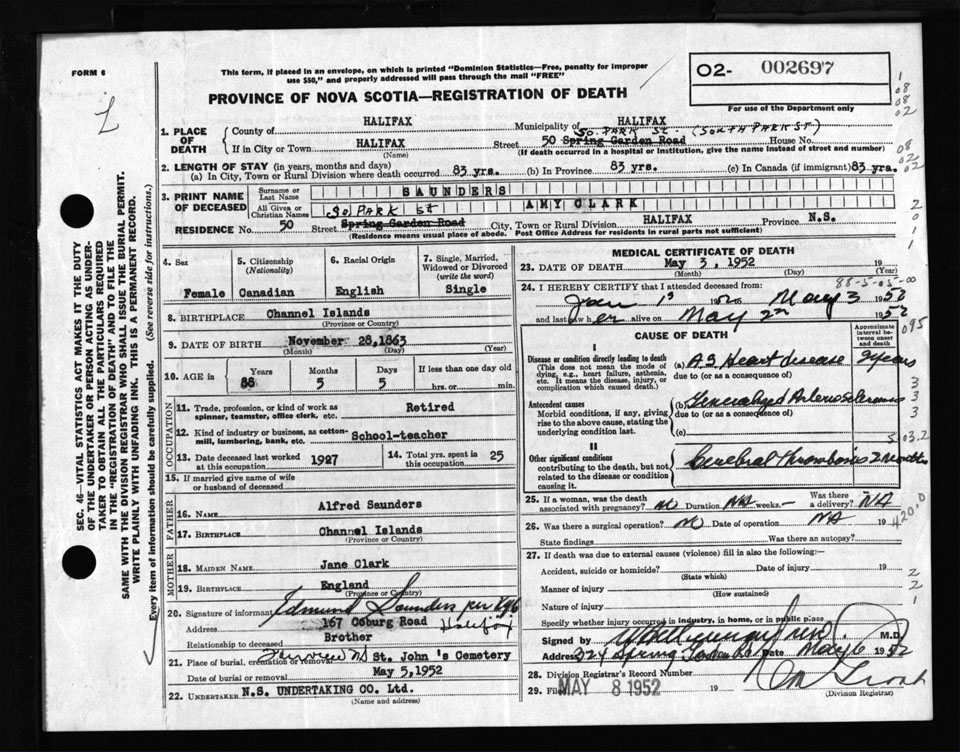 FORM 6
This form, if placed in an envelope, on which is printed "Dominion Statistics—Free, penalty for improper
use $50," and properly addressed will pass through the mail "FREE"
PROVINCE OF NOVA SCOTIA—REGISTRATION OF DEATH
O2- 002697
For use of the Department only
1. PLACE OF DEATH
County of HALIFAX Municipality of HALIFAX
SO. PARK ST. (SOUTH PARK ST)
If in City or Town HALIFAX Street 50 Spring Garden Road House No.
(Name) (If death occurred in a hospital or institution, give the name instead of street and number)
2. LENGTH OF STAY (in years, months and days)
(a) In City, Town or Rural Division where death occurred 83 yrs. (b) In Province 83 yrs. (c) In Canada (if immigrant) 83 yrs.
3. PRINT NAME OF DECEASED
Surname or Last Name SAUNDERS
All Given or Christian Names AMY CLARK
SO PARK St
RESIDENCE No. 50 Street Spring Garden Road City, Town or Rural Division HALIFAX Province N.S.
(Residence means usual place of abode. Post Office Address for residents in rural parts not sufficient)
4. Sex Female
5. Citizenship (Nationality) Canadian
6. Racial Origin English
7. Single, Married, Widowed or Divorced (write the word) Single
8. BIRTHPLACE Channel Islands
(Province or Country)
9. DATE OF BIRTH November 28, 1863
(Month) (Day) (Year)
10. AGE in Years 88 Months 5 Days 5 If less than one day hrs. or min.
OCCUPATION
11. Trade, profession, or kind of work as
spinner, teamster, office clerk, etc. Retired
12. Kind of industry or business, as cotton-
mill, lumbering, bank, etc. School-teacher
13. Date deceased last worked
at this occupation 1927
14. Total yrs. spent in
this occupation 25
15. If married give name of wife
or husband of deceased
FATHER
16. NAME Alfred Saunders
17. BIRTHPLACE Channel Islands
(Province or Country)
MOTHER
18. MAIDEN NAME Jane Clark
19. BIRTHPLACE England
(Province or Country)
20. Signature of informant Edmund Saunders per
Address 167 Coburg Road Halifax
Relationship to deceased Brother
21. Place of burial, cremation or removal Fairview NS St. John 's Cemetery
Date of burial or removal May 5, 1952
22. UNDERTAKER N.S. UNDERTAKING CO. Ltd.
(Name and address)
MEDICAL CERTIFICATE OF DEATH
23. DATE OF DEATH May 3, 1952 19
(Month) (Day) (Year)
88-5-05-00
24. I HEREBY CERTIFY that I attended deceased from:
Jan 1st 1952 to May 3 1952
and last saw her alive on May 2nd 1952
CAUSE OF DEATH
Approximate interval between onset and death
I
Disease or condition directly leading to death
(This does not mean the mode of
dying, e.g., heart failure, asthenia,
etc. It means the disease, injury, or
complication which caused death.)
(a) A.S. Heart disease 2 years
due to (or as a consequence of)
Antecedent causes
Morbid conditions, if any, giving
rise to the above cause, stating the
underlying condition last.
(b) Generalized Arteriosclerosis
due to (or as a consequence of)
(c)
II
Other significant conditions
contributing to the death, but not
related to the disease or condition
causing it.
Cerebral thrombosis 2 months
25. If a woman, was the death
associated with pregnancy? Duration NA weeks. Was there
a delivery? NA
26. Was there a surgical operation? Date of operation NA 19
State findings Was there an autopsy?
27. If death was due to external causes (violence) fill in also the following:—
Accident, suicide or homicide? Date of injury 19
(State which)
Manner of injury
(How sustained)
Nature of injury
Specify whether injury occurred in industry, in home, or in public place
Signed by M.D.
Address 224 Spring Garden Rd. Date May 6 1952
28. Division Registrar's Record Number
29. Filed MAY 8 1952 19
(Division Registrar)
SEC. 46—VITAL STATISTICS ACT MAKES IT THE DUTY
OF THE UNDERTAKER OR PERSON ACTING AS UNDER-
TAKER TO OBTAIN ALL THE PARTICULARS REQUIRED
IN THE "REGISTRATION OF DEATH" AND TO FILE THE
SAME WITH THE DIVISION REGISTRAR WHO SHALL ISSUE THE BURIAL PERMIT.
WRITE PLAINLY WITH UNFADING INK. THIS IS A PERMANENT RECORD.
Every item of information should be carefully supplied. (See reverse side for instructions.)
1
08
08
02
08
02
02
2
0
1
1
095
3
3
3
5-03.2
420.0
2
2
1